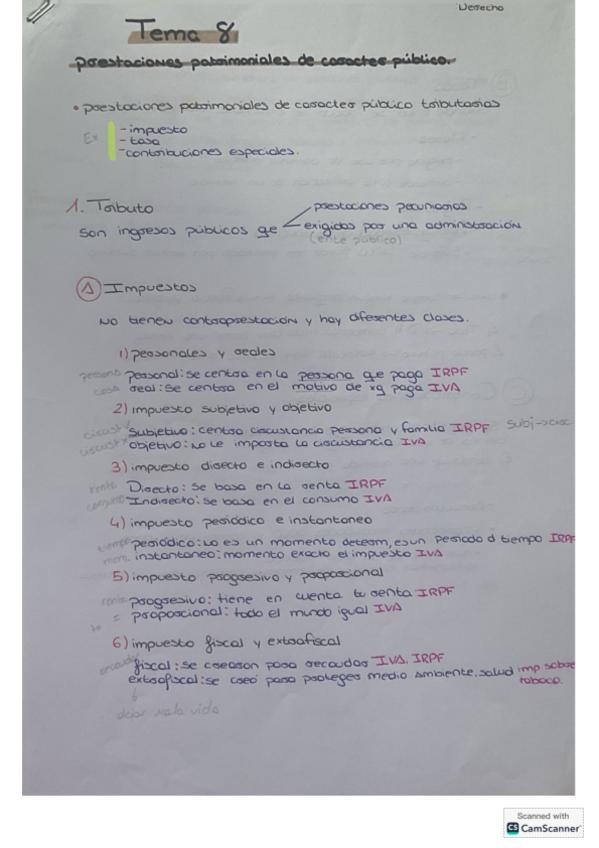 Derecho
Tema 8
prestaciones patrimoniales de caracter público.
• prestaciones patrimoniales de caracter público tributarias
Ex
- impuesto
- tasa
- contribuciones especiales.
1. Tributo
prestaciones pecuniarias
son ingresos públicos qe
exigidos por una administración
(ente público)
A Impuestos
No tienen contraprestación y hay diferentes clases.
1) personales y reales
persona personal: se centra en la persona que paga IRPF
cosa real: se centra en el motivo de xq paga IVA
2) impuesto subjetivo y objetivo
subjetivo: centra ciscustancia persona y familia IRPF subj→circ
objetivo: no le importa la ciscustancia IVA
3) impuesto directo e indirecto
renta Directo: se basa en la renta IRPF
consumo Indirecto: se basa en el consumo IVA
4) impuesto periódico e instantaneo
tiempo periódico: no es un momento determ, es un periodo d tiempo IRPF
mom. instantaneo: momento exacto el impuesto IVA
5) impuesto progresivo y proporcional
renta progresivo: tiene en cuenta tu renta IRPF
= proporcional: todo el mundo igual IVA
6) impuesto fiscal y extrafiscal
fiscal: se crearon para recaudar IVA, IRPF
extrafiscal: se creó para proteger medio ambiente, salud imp sobre
tabaco.
dejar mala vida
Scanned with
CS CamScanner